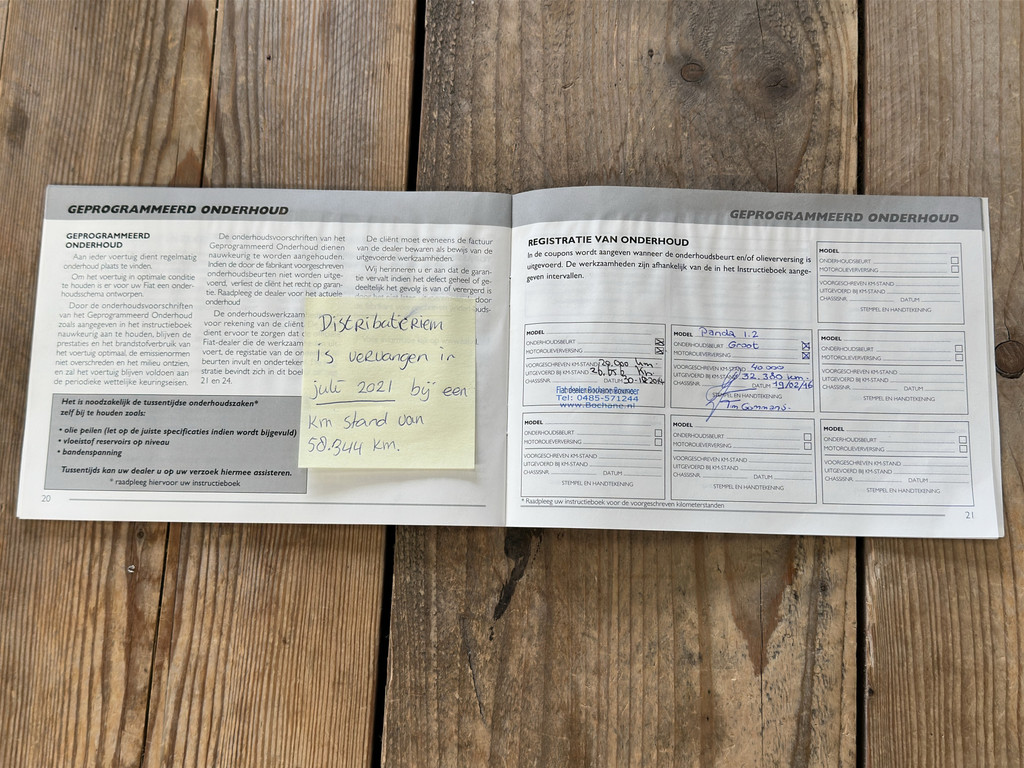 GEPROGRAMMEERD ONDERHOUD
GEPROGRAMMEERD
ONDERHOUD
Aan ieder voertuig dient regelmatig
onderhoud plaats te vinden.
Om het voertuig in optimale conditie
te houden is er voor uw Fiat een onder-
houdsschema ontworpen.
Door de onderhoudsvoorschriften
van het Geprogrammeerd Onderhoud
zoals aangegeven in het instructieboek
nauwkeurig aan te houden, blijven de
prestaties en het brandstofverbruik van
het voertuig optimaal, de emissienormen
niet overschreden en het milieu ontzien,
en zal het voertuig blijven voldoen aan
de periodieke wettelijke keuringseisen.
De onderhoudsvoorschriften van het
Geprogrammeerd Onderhoud dienen
nauwkeurig te worden aangehouden.
Indien de door de fabrikant voorgeschreven
onderhoudsbeurten niet worden uitge-
voerd, verliest de cliënt het recht op garan-
tie. Raadpleeg de dealer voor het actuele
onderhoud
De onderhoudswerkzaam
voor rekening van de cliënt
dient ervoor te zorgen dat
Fiat-dealer die de werkzaam
voert, de registatie van de on
beurten invult en onderteken
stratie bevindt zich in dit boe
21 en 24.
De cliënt moet eveneens de factuur
van de dealer bewaren als bewijs van de
uitgevoerde werkzaamheden.
Wij herinneren u er aan dat de garan-
tie vervalt indien het defect geheel of ge-
deeltelijk het gevolg is van of verergerd is
door
uds-
Distributieriem
is vervangen in
juli 2021 bij een
km stand van
58.344 km.
Het is noodzakelijk de tussentijdse onderhoudszaken*
zelf bij te houden zoals:
• olie peilen (let op de juiste specificaties indien wordt bijgevuld)
• vloeistof reservoirs op niveau
• bandenspanning
Tussentijds kan uw dealer u op uw verzoek hiermee assisteren.
* raadpleeg hiervoor uw instructieboek
20
GEPROGRAMMEERD ONDERHOUD
REGISTRATIE VAN ONDERHOUD
In de coupons wordt aangeven wanneer de onderhoudsbeurt en/of olieverversing is
uitgevoerd. De werkzaamheden zijn afhankelijk van de in het Instructieboek aange-
geven intervallen.
MODEL
ONDERHOUDSBEURT
MOTOROLIEVERVERSING
VOORGESCHREVEN KM-STAND
UITGEVOERD BIJ KM-STAND
CHASSISNR. DATUM
STEMPEL EN HANDTEKENING
MODEL
ONDERHOUDSBEURT
MOTOROLIEVERVERSING
VOORGESCHREVEN KM-STAND 20.000 km.
UITGEVOERD BIJ KM-STAND
CHASSISNR. DATUM
Fiat dealer Bochane Boxmeer
Tel: 0485-571244
www.Bochane.nl
MODEL Panda 1.2
ONDERHOUDSBEURT Groot
MOTOROLIEVERVERSING
VOORGESCHREVEN KM-STAND 40.000
UITGEVOERD BIJ KM-STAND 32.330 km.
CHASSISNR. DATUM 19/02/16
STEMPEL EN HANDTEKENING
MODEL
ONDERHOUDSBEURT
MOTOROLIEVERVERSING
VOORGESCHREVEN KM-STAND
UITGEVOERD BIJ KM-STAND
CHASSISNR. DATUM
STEMPEL EN HANDTEKENING
MODEL
ONDERHOUDSBEURT
MOTOROLIEVERVERSING
VOORGESCHREVEN KM-STAND
UITGEVOERD BIJ KM-STAND
CHASSISNR. DATUM
STEMPEL EN HANDTEKENING
MODEL
ONDERHOUDSBEURT
MOTOROLIEVERVERSING
VOORGESCHREVEN KM-STAND
UITGEVOERD BIJ KM-STAND
CHASSISNR. DATUM
STEMPEL EN HANDTEKENING
MODEL
ONDERHOUDSBEURT
MOTOROLIEVERVERSING
VOORGESCHREVEN KM-STAND
UITGEVOERD BIJ KM-STAND
CHASSISNR. DATUM
STEMPEL EN HANDTEKENING
* Raadpleeg uw instructieboek voor de voorgeschreven kilometerstanden
21